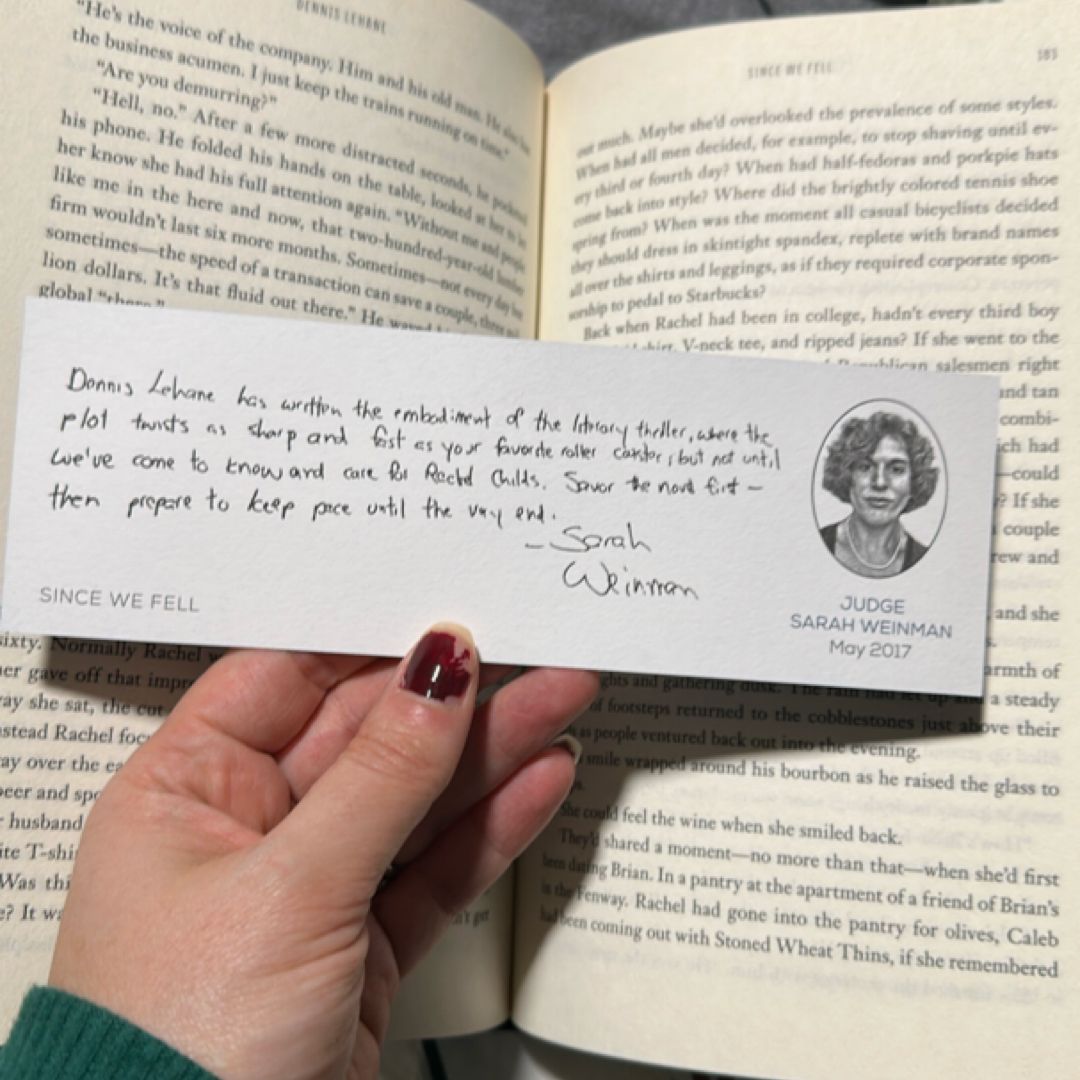 DENNIS LEHANE
"He's the voice of the company. Him and his old man. He
the business acumen. I just keep the trains running on time."
"Are you demurring?"
"Hell, no." After a few more distracted seconds, he pocketed
his phone. He folded his hands on the table, looked at her to let
her know she had his full attention again. "Without me and people
like me in the here and now, that two-hundred-year-old lumber
firm wouldn't last six more months. Sometimes—not every day but
sometimes—the speed of a transaction can save a couple, three
lion dollars. It's that fluid out there." He waved
global "there"
SINCE WE FELL
out much. Maybe she'd overlooked the prevalence of some styles.
When had all men decided, for example, to stop shaving until ev-
ery third or fourth day? When had half-fedoras and porkpie hats
come back into style? Where did the brightly colored tennis shoe
spring from? When was the moment all casual bicyclists decided
they should dress in skintight spandex, replete with brand names
all over the shirts and leggings, as if they required corporate spon-
sorship to pedal to Starbucks?
Back when Rachel had been in college, hadn't every third boy
V-neck tee, and ripped jeans? If she went to the
Republican salesmen right
and tan
combi-
ich had
—could
? If she
couple
rew and
and she
Dennis Lehane has written the embodiment of the literary thriller, where the
plot twists as sharp and fast as your favorite roller coaster, but not until
we've come to know and care for Rachel Childs. Savor the novel first –
then prepare to keep pace until the very end.
– Sarah
Weinman
SINCE WE FELL
JUDGE
SARAH WEINMAN
May 2017
sixty. Normally Rachel
her gave off that impre
way she sat, the cut
stead Rachel foc
ay over the ea
beer and spo
husband
ite T-shi
Was thi
e? It wa
n't get
armth of
ghts and gathering dusk. The rain had let up and a steady
of footsteps returned to the cobblestones just above their
as people ventured back out into the evening.
smile wrapped around his bourbon as he raised the glass to
She could feel the wine when she smiled back.
They'd shared a moment—no more than that—when she'd first
been dating Brian. In a pantry at the apartment of a friend of Brian's
in the Fenway. Rachel had gone into the pantry for olives, Caleb
had been coming out with Stoned Wheat Thins, if she remembered